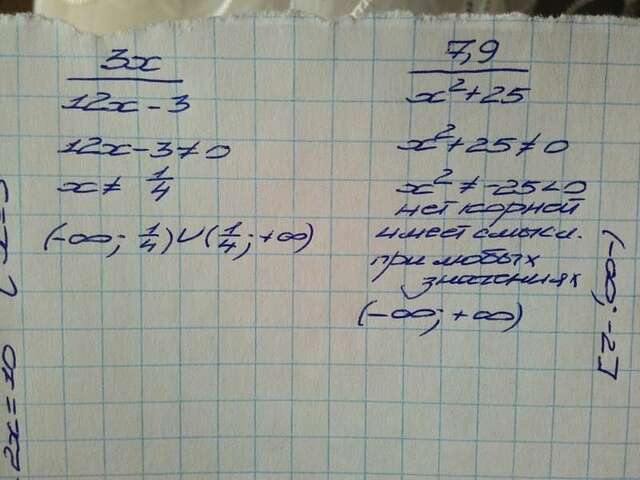 3x
12x - 3
12x - 3 ≠ 0
x ≠ 1/4
(-∞; 1/4) ∪ (1/4; +∞)
7,9
x² + 25
x² + 25 ≠ 0
x² ≠ -25 < 0
нет корной
имеет смысл.
при любых
значениях
(-∞; +∞)
(-∞; -2]
2x = 10